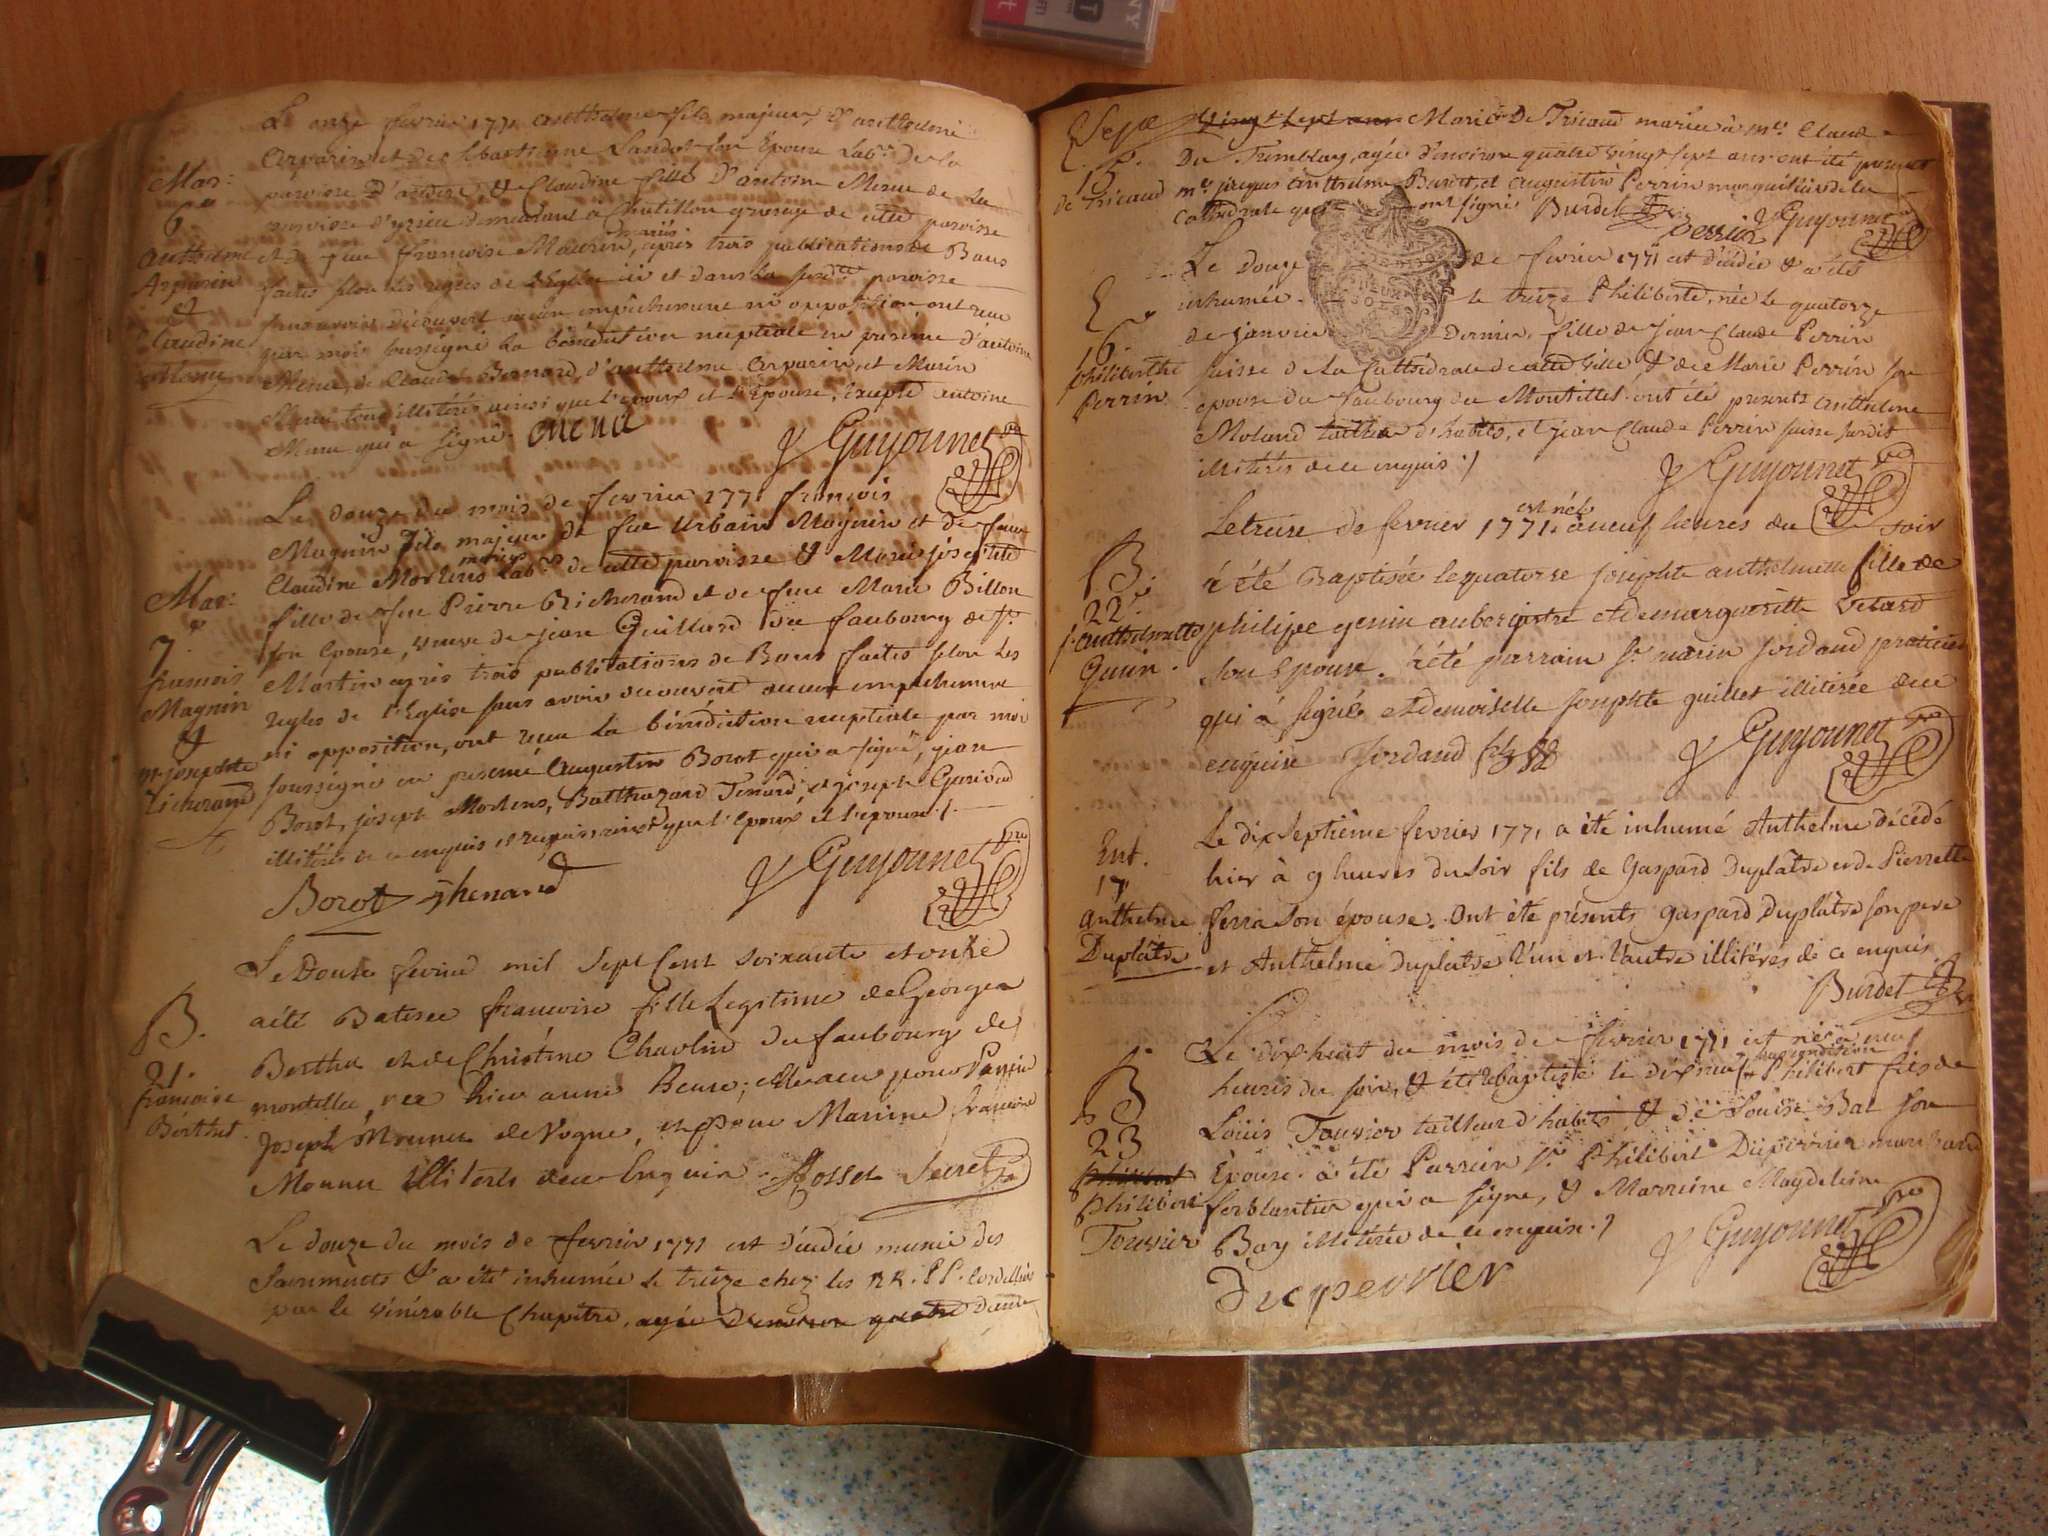 Le onze fevrier 1771 anthelme fils majeur d'anthelme
Arparin et de sebastienne Landot son Epouse Lab.r de la
paroisse d'andert, & Claudine fille d'antoine Mena de la
paroisse d'yzieu demeurant à Chatillon grange de cette paroisse
et de feue francoise Maurin, mariés après trois publications de Bans
faites selon les regles de l'Eglise ici et dans la susd.te paroisse
sans avoir découvert aucun empechement ni opposition, ont reçu
par moi soussigné la bénédiction nuptiale en presence d'antoine
Mena, de Claude Bernard, d'anthelme Arparin, et Marin
Mena tous illitérés ainsi que l'epoux et l'Epouse, excepté antoine
Mena qui a signé. Mena
Guyonnet pre
Mar:
6.e
Anthelme
Arparin
&
Claudine
Mena
Le douze du mois de fevrier 1771 francois
Magnin fils majeur de feu Urbain Magnin et de feue
Claudine Martens mariés Lab.r de cette paroisse & Marie josephte
fille de feu Pierre Richerand et de feue Marie Billon
son Epouse, veuve de jean Guillard du faubourg de St
Martin après trois publications de Bans faites selon les
regles de l'Eglise sans avoir decouvert aucun empechement
ni opposition, ont reçu la bénédiction nuptiale par moi
soussigné en presence Augustin Borot qui a signé, jean
Borot, joseph Martens, Balthazard Tenard, et joseph Guerin
illitérés de ce enquis et requis ainsi que l'Epoux et l'epouse.
Borot Thenard
Guyonnet pre
Mar:
7.
francois
Magnin
&
m. josephte
Richerand
Le Douze fevrier mil Sept Cent soixante et onze
a été Batisée francoise fille Legitime de George
Berthet et de Christine Chavlin du faubourg de
montellier, nee hier a une heure; elle a eu pour Parrin
Joseph Monnet de Vogne, et pour Marrine francoise
Monnet illiterés de ce Enquis. Rosset Secret.
B.
21.
francoise
Berthet.
Le douze du mois de fevrier 1771 est décédée munie des
Sacrements & a été inhumée le treize chez les RR. PP. Cordelliers
par le vénérable Chapitre, agée d'environ quatre dame
Sepre
15.
de Tricaud
vingt sept ans Marie De Tricaud mariée à m.re Claude
Du Tremblay, agée d'environ quatre vingt sept ans ont été presents
m.re jacques anthelme Burdet, et augustin Perrin marguillier de la
Cathedrale qui ont signé Burdet
Perrin Guyonnet pre
Le Douze de fevrier 1771 est décédée & a été
inhumée le treize Philiberte, née le quatorze
de janvier Dernier, fille de jean Claude Perrin
suisse de la Cathédrale de cette ville, & de Marie Perrin son
epouse du faubourg des Montilles. ont été presents anthelme
Moland tailleur d'habits, et jean Claude Perrin suisse susdit
illitérés de ce enquis.
Guyonnet pre
16.
philiberthe
Perrin
Le treise de fevrier 1771 est née à neuf heures du soir
& à été Baptisée le quatorse josephte anthelmette fille de
philippe genin aubergiste et de margueritte Velard
son Epouse. à été parrain Sr marin jordand praticien
qui à signé et demoiselle josephte guillet illitirée de ce
enquise Jordand
Guyonnet pre
B.
22.
j. anthelmette
Genin.
Le dix Septième fevrier 1771 a été inhumé Anthelme décédé
hier à 9 heures du soir fils de Gaspard Duplâtre et de Pierrette
ferra son épouse. Ont été présents gaspard Duplâtre son pere
et Anthelme duplatre l'un et l'autre illitérés de ce enquis
Burdet
Ent.
17
Anthelme
Duplâtre
Le dix huit du mois de fevrier 1771 est né à neuf
heures du soir, & été rebaptisé le dixneuf sous condition Philibert fils de
Louis Touvier tailleur d'habits & de Louise Bal son
Epouse. à été Parrein Sr Philibert Duperrier marchand
ferblantier qui a signe, & Marreine Magdeleine
Bay illitérée de ce enquise.
Guyonnet pre
Duperrier
B
23
Philibert
Philibert
Touvier